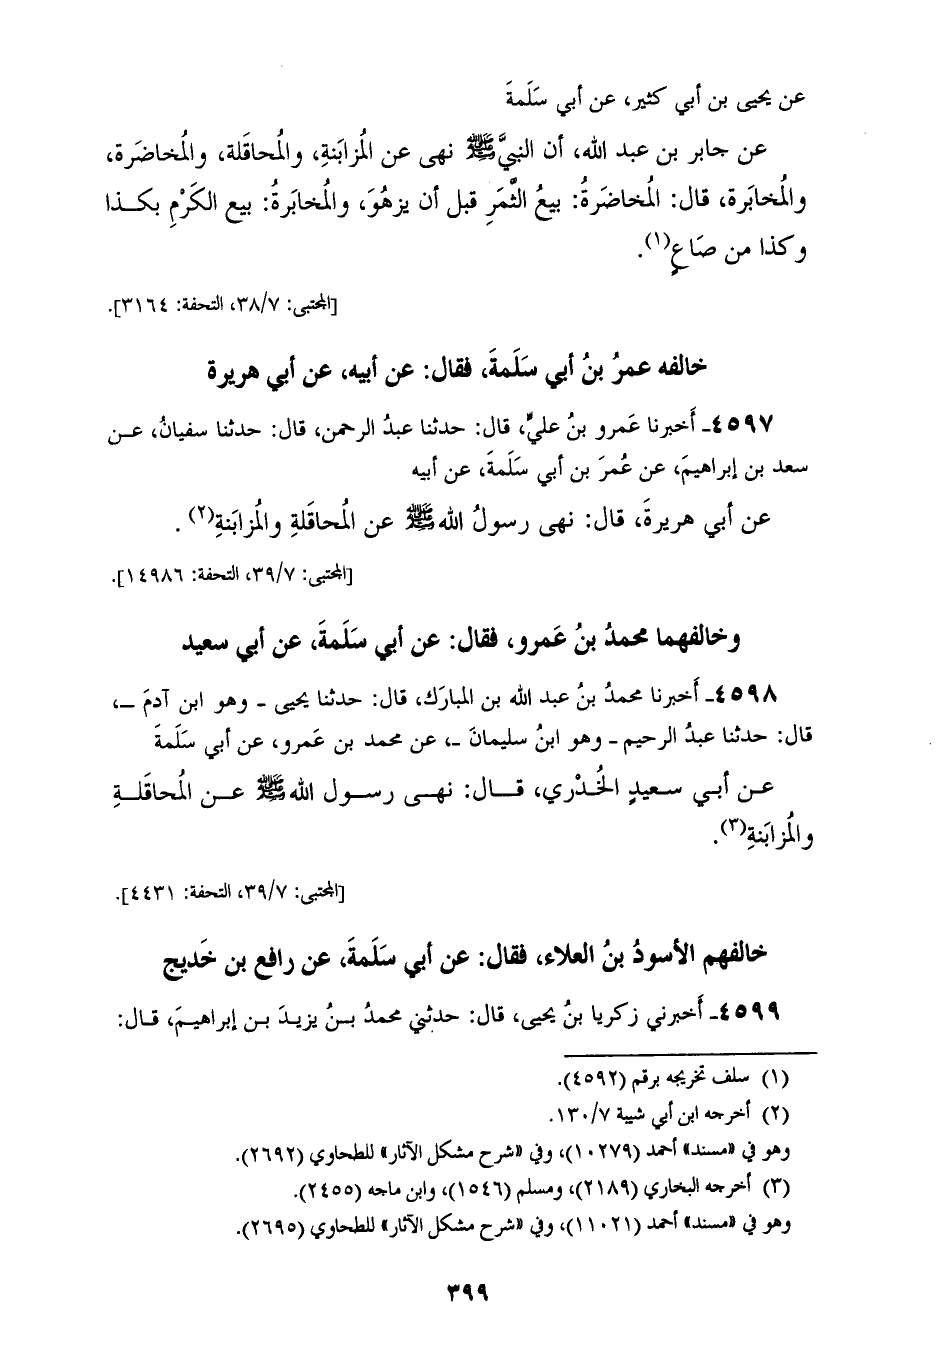 عن يحيى بن أبي كثير، عن أبي سَلَمةَ
عن جابر بن عبد الله، أن النبيَّ ﷺ نهى عن المُزابَنةِ، والمُحاقَلة، والمُخاضَرة،
والمُخابَرة، قال: المُخاضَرةُ: بيعُ الثَّمَرِ قبل أن يزهُوَ، والمُخابَرةُ: بيع الكَرْمِ بكــذا
وكذا من صَاعٍ(١).
[المجتبى: ٣٨/٧، التحفة: ٣١٦٤].
خالفه عمرُ بنُ أبي سَلَمةَ، فقال: عن أبيه، عن أبي هريرة
٤٥٩٧ـ أَخبرنا عَمرو بنُ عليٍّ، قال: حدثنا عبدُ الرحمن، قال: حدثنا سفيانُ، عـن
سعد بن إبراهيمَ، عن عُمرَ بن أبي سَلَمةَ، عن أبيه
عن أبي هريرةَ، قال: نهى رسولُ الله ﷺ عن المُحاقَلةِ والمُزابَنةِ(٢).
[المجتبى: ٣٩/٧، التحفة: ١٤٩٨٦].
وخالفهما محمدُ بنُ عَمرو، فقال: عن أبي سَلَمةَ، عن أبي سعيد
٤٥٩٨ـ أَخبرنا محمدُ بنُ عبد الله بن المبارَك، قال: حدثنا يحيى ـ وهو ابن آدمَ ـ،
قال: حدثنا عبدُ الرحيم ـ وهو ابنُ سليمانَ ـ، عن محمد بن عَمرو، عن أبي سَلَمةَ
عـن أبـي سـعيدٍ الخُـدْري، قـــال: نهــى رســول الله ﷺ عــن المُحاقَلــةِ
والمُزابَنةِ(٣).
[المجتبى: ٣٩/٧، التحفة: ٤٤٣١].
خالفهم الأسودُ بنُ العلاء، فقال: عن أبي سَلَمةَ، عن رافع بن خَديج
٤٥٩٩ـ أَخبرني زكريا بنُ يحيى، قال: حدثني محمدُ بــنُ يزيـدَ بـن إبراهيـمَ، قـال:
(١) سلف تخريجه برقم (٤٥٩٢).
(٢) أخرجه ابن أبي شيبة ١٣٠/٧.
وهو في «مسند» أحمد (١٠٢٧٩)، وفي «شرح مشكل الآثار» للطحاوي (٢٦٩٢).
(٣) أخرجه البخاري (٢١٨٩)، ومسلم (١٥٤٦)، وابن ماجه (٢٤٥٥).
وهو في «مسند» أحمد (١١٠٢١)، وفي «شرح مشكل الآثار» للطحاوي (٢٦٩٥).
٣٩٩